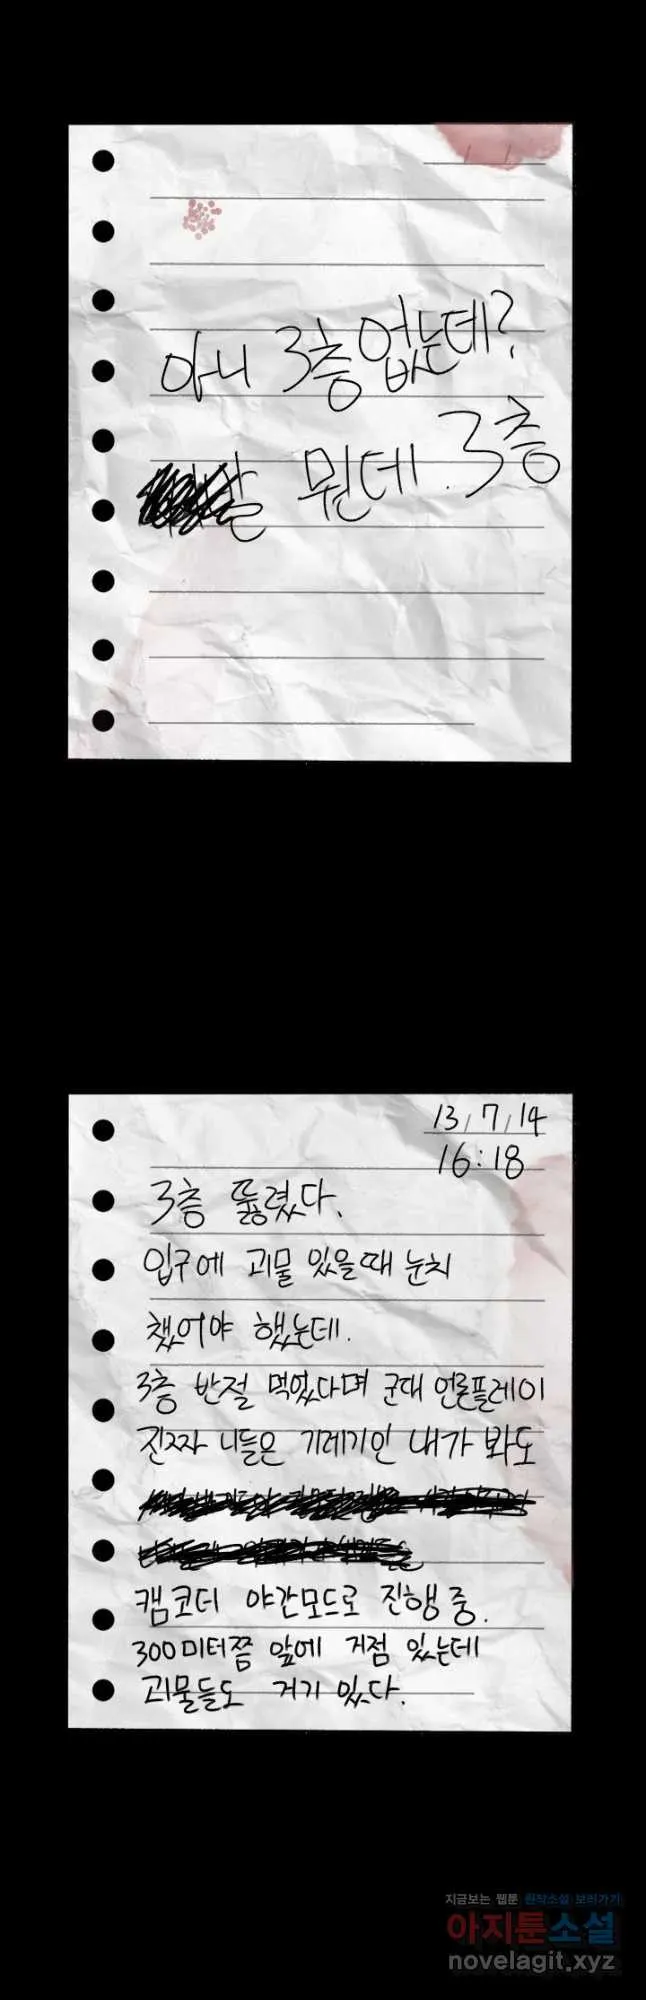 아니 3층 없는데?
뭔데 3층
13/7/14
16:18
3층 뚫렸다.
입구에 괴물 있을때 눈치
챘어야 했는데.
3층 반절 먹었다며 군대 언론플레이
진짜 니들은 기레기인 내가 봐도
캠코더 야간모드로 진행 중.
300미터쯤 앞에 거점 있는데
괴물들도 거기 있다.
지금보는 웹툰 원작소설 보러가기
아지툰소설
novelagit.xyz